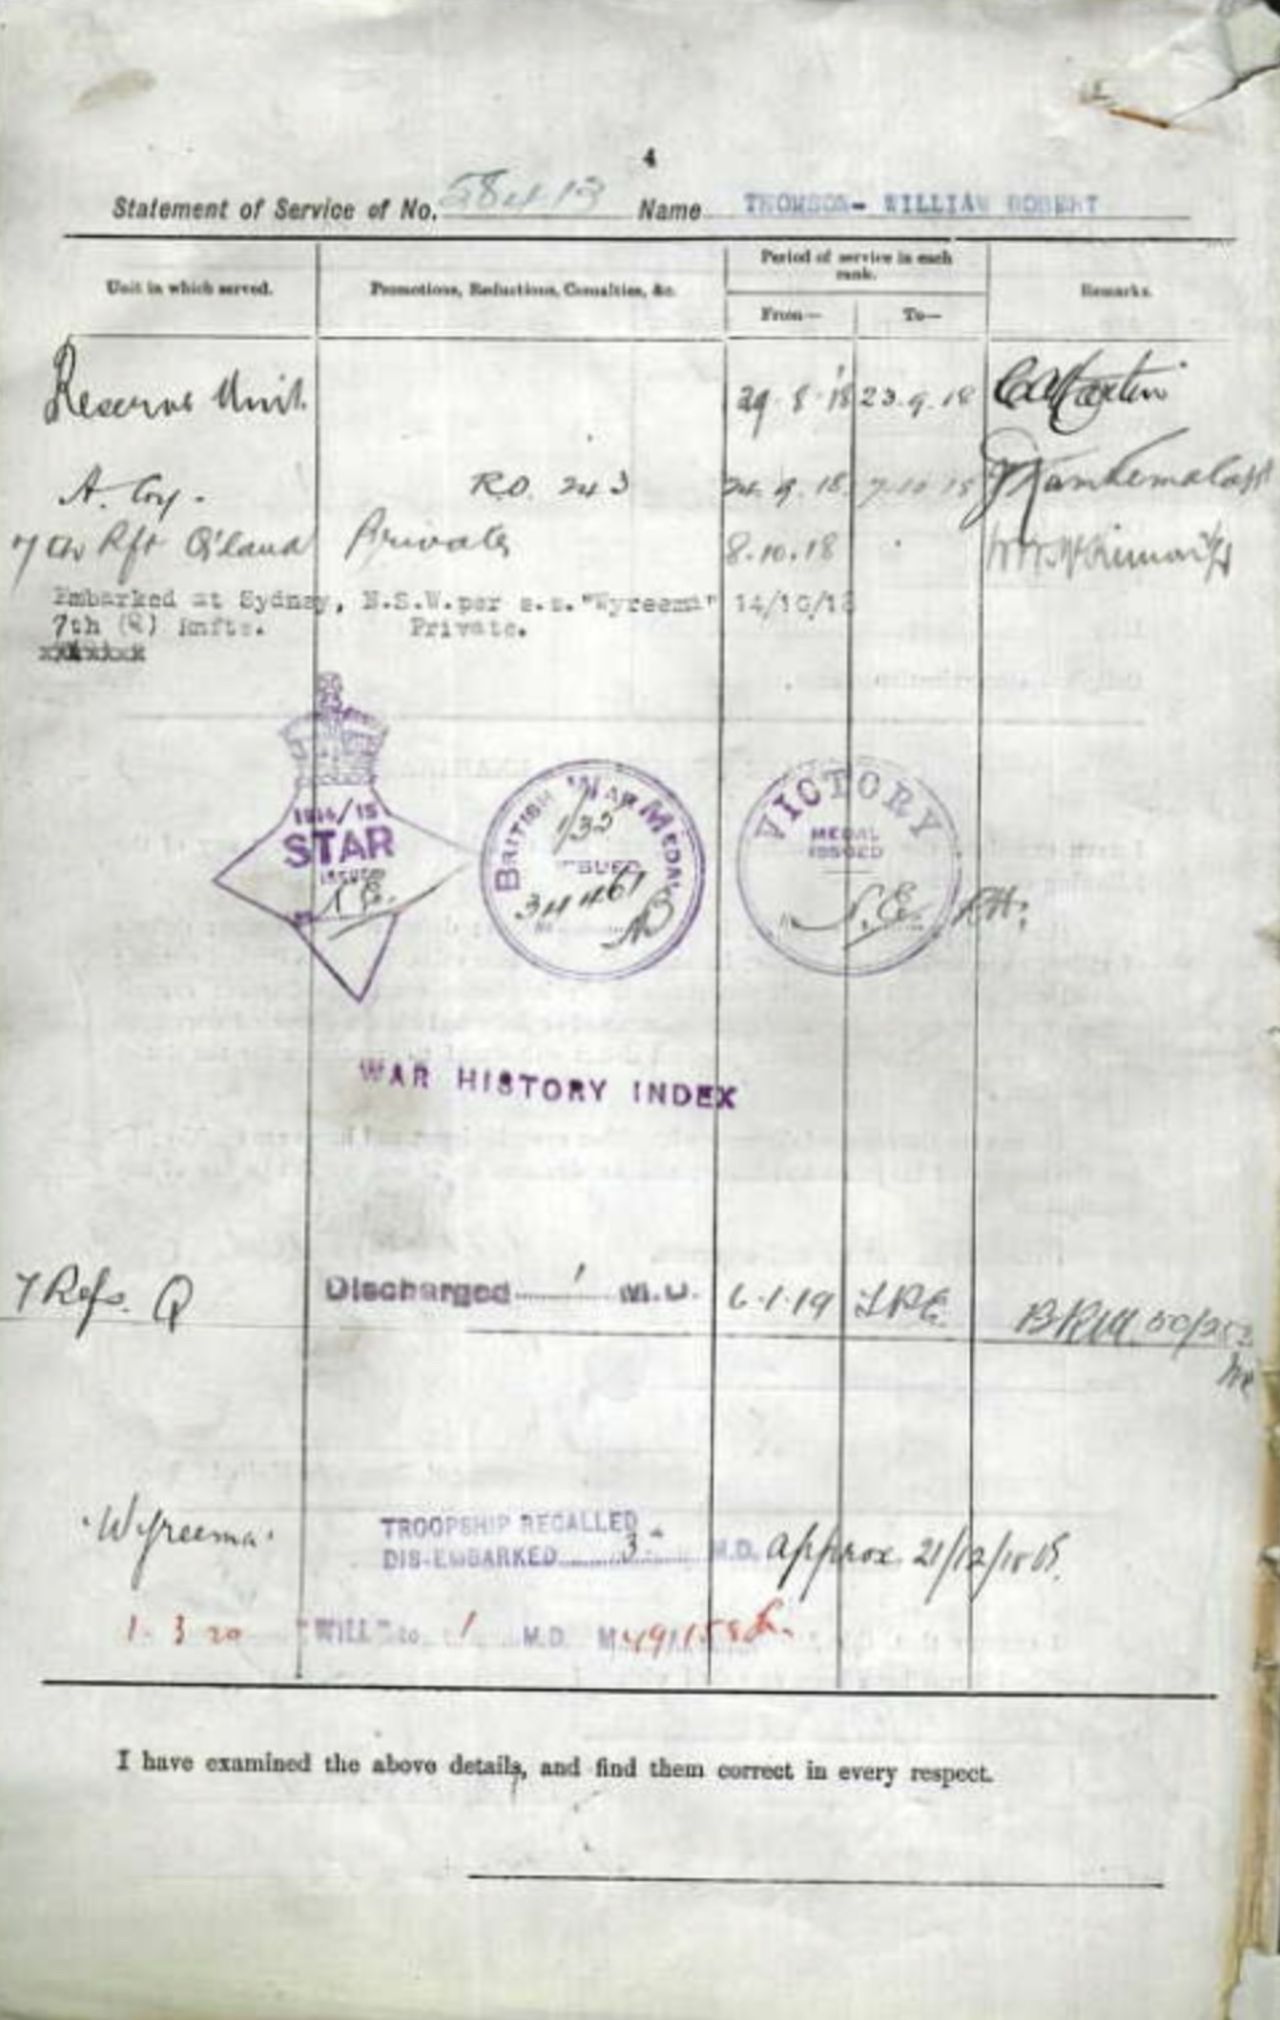 4
Statement of Service of No. 58413 Name THOMSON- WILLIAM ROBERT
Unit in which served. Promotions, Reductions, Casualties, &c. Period of service in each rank. Remarks.
From— To—
Reserve Unit. 29.8.18 23.9.18
A. Coy. R.O. 243 24.9.18 7.10.18
7th Rft Q'land Private 8.10.18
Embarked at Sydney, N.S.W. per s.s. "Wyreema" 14/10/18
7th (Q) Rnfts. Private.
1914/15
STAR
ISSUED
N.E.
BRITISH WAR MEDAL
1/35
ISSUED
34461
VICTORY
MEDAL
ISSUED
N.E.
WAR HISTORY INDEX
7 Refs. Q Discharged 1 M.D. 6.1.19
"Wyreema" TROOPSHIP RECALLED
DIS-EMBARKED 3 M.D. approx. 21/12/18
1.3.20 "WILL" to 1 M.D.
I have examined the above details, and find them correct in every respect.